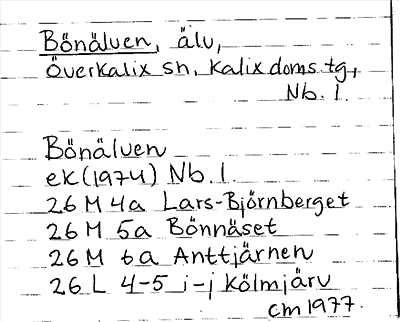 Bönälven, älv,
Överkalix sn, Kalix doms.tg,
Nb. l.
Bönälven
ek(1974) Nb. l.
26 M 4a Lars-Björnberget
26 M 5a Bönnäset
26 M 6a Anttjärnen
26 L 4-5 i-j Kölmjärv
cm 1977.